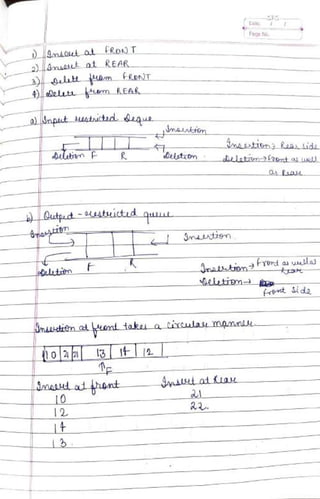 Date / /
Page No.
1) Insert at FRONT
2) Insert at REAR
3) Delete from FRONT
4) Delete from REAR
a) Input restricted Deque
Insertion
Deletion F R Deletion
Insertion → Rear side
Deletion → Front as well
as Rear
b) Output-restricted queue
Insertion
Insertion
Deletion F R
Insertion → Front as well as
Rear
Deletion →
Front side
Insertion at front takes a circular manner
10 13 14 12
F
Insert at front Insert at Rear
10 21
12 22
14
13